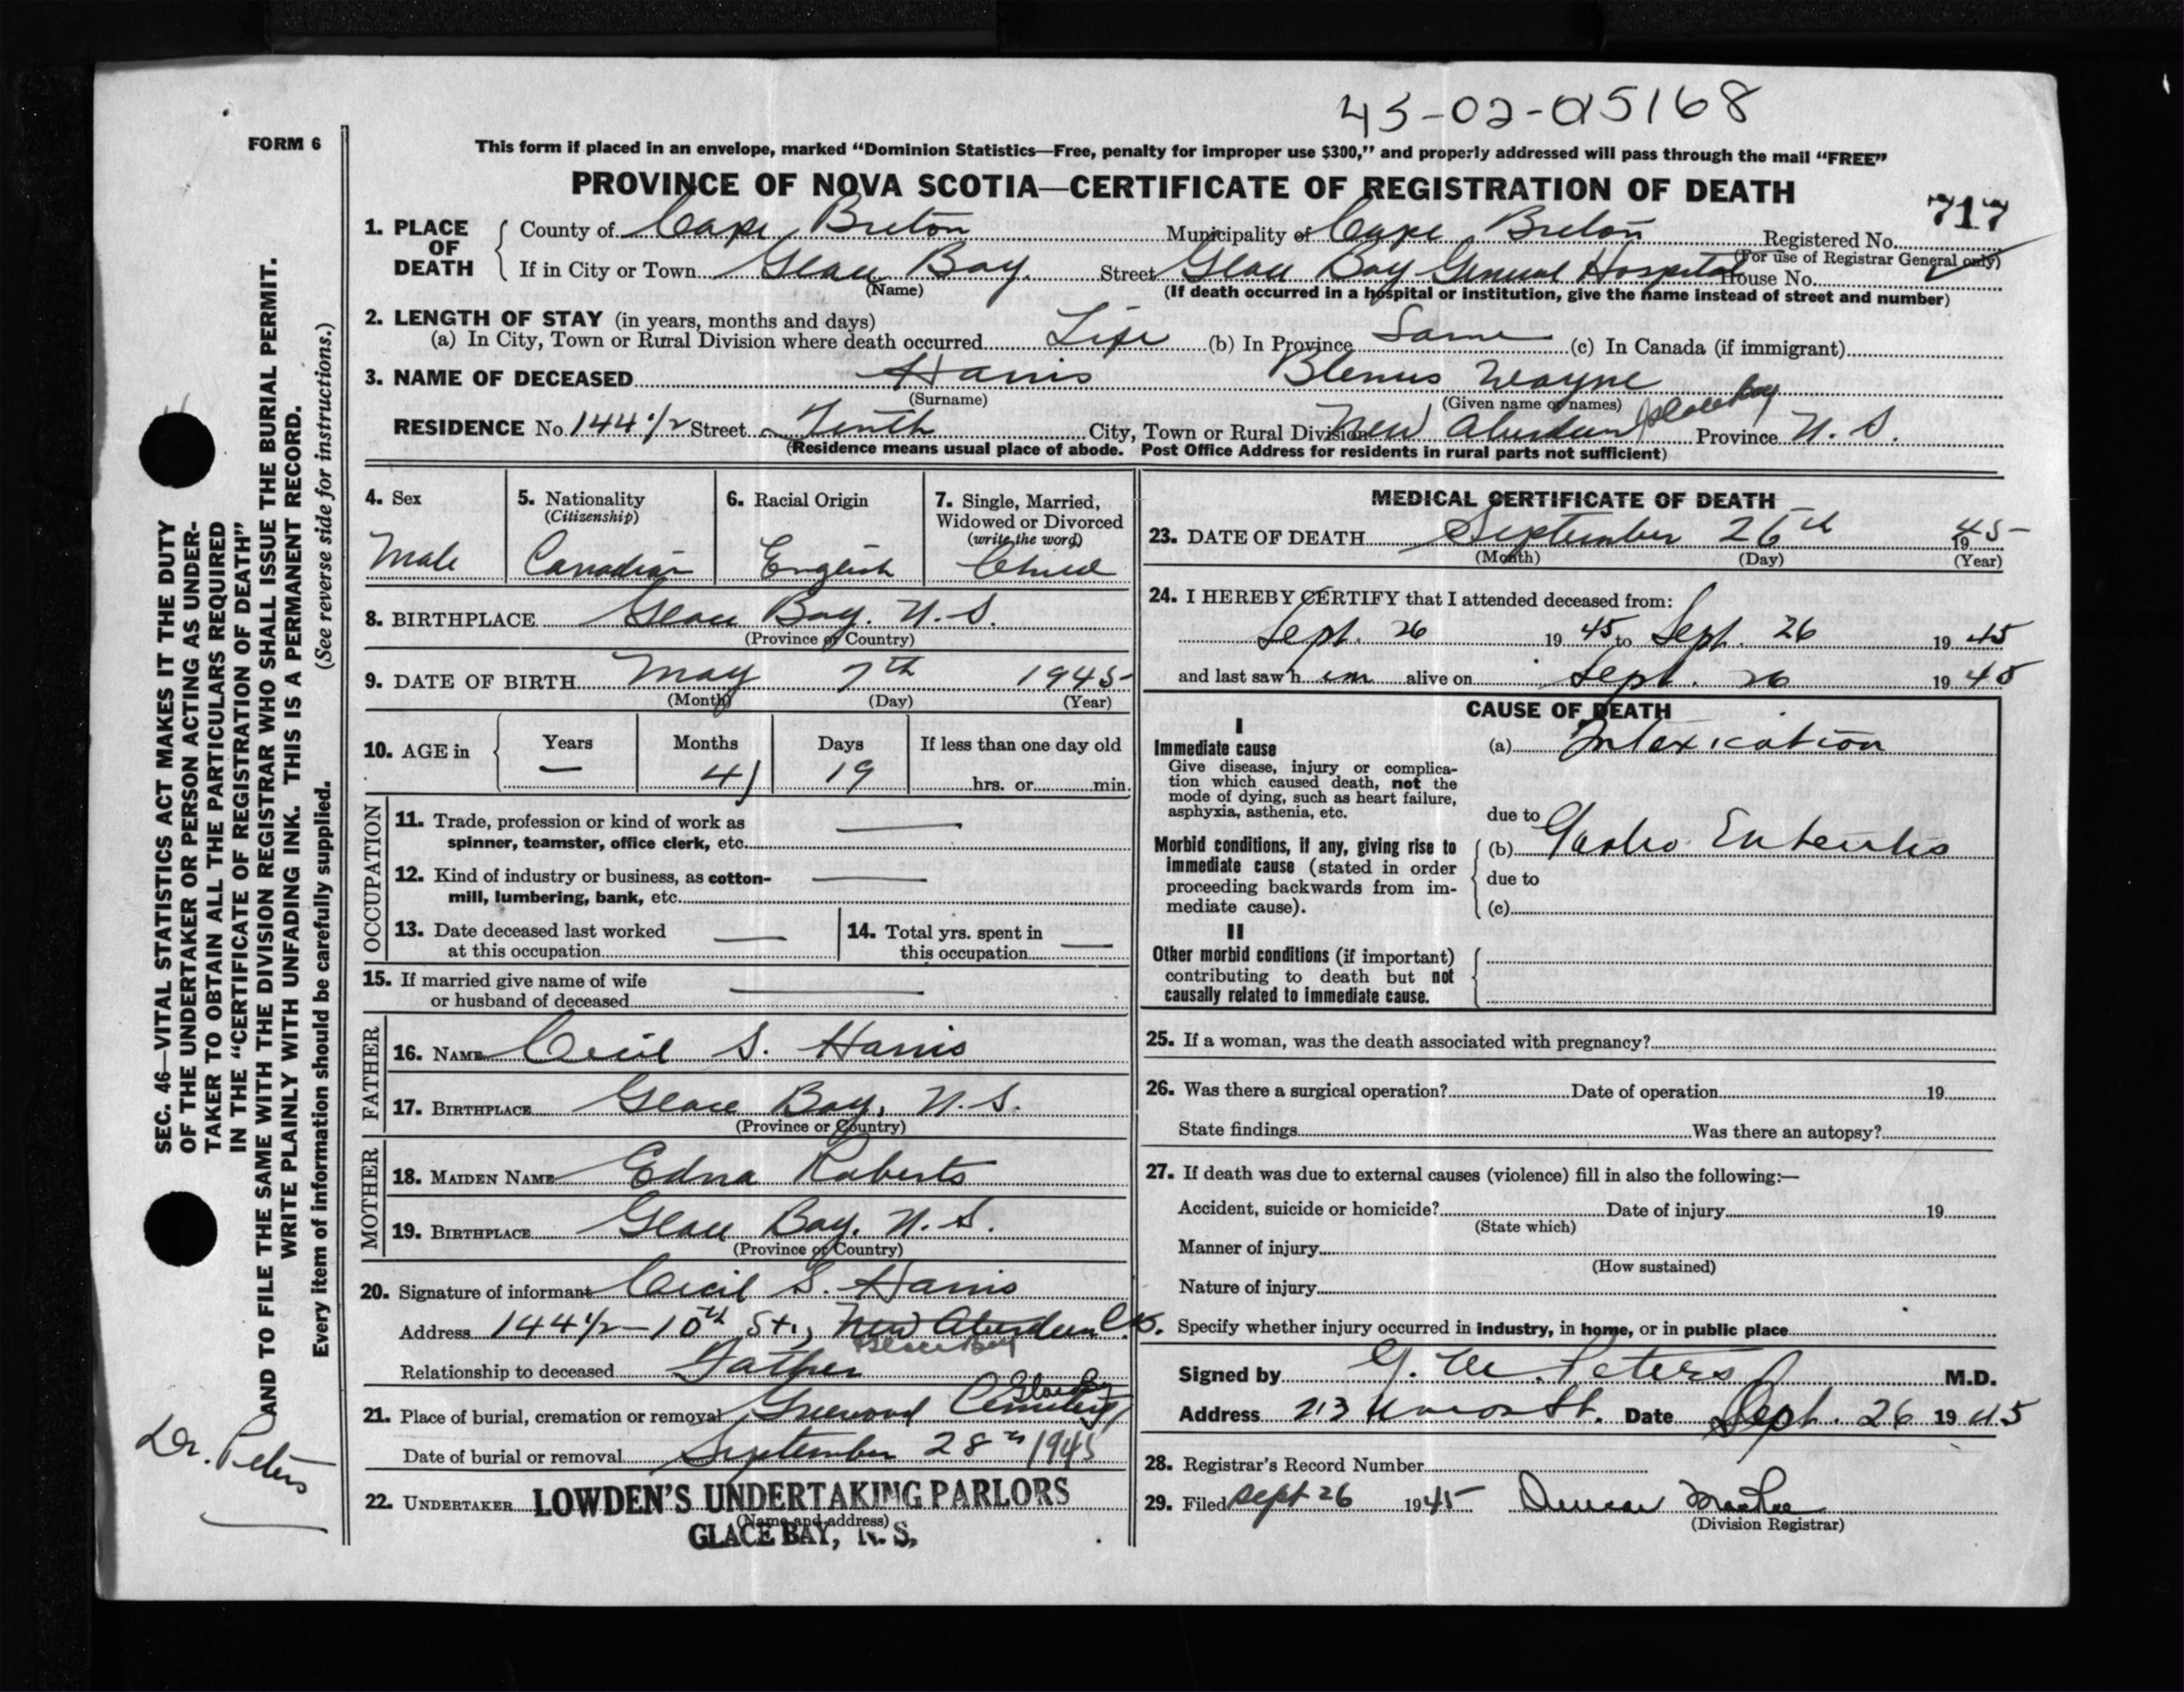 45-02-015168
FORM 6
This form if placed in an envelope, marked “Dominion Statistics—Free, penalty for improper use $300,” and properly addressed will pass through the mail “FREE”
PROVINCE OF NOVA SCOTIA—CERTIFICATE OF REGISTRATION OF DEATH
717
1. PLACE OF DEATH County of Cape Breton Municipality of Cape Breton Registered No.
(For use of Registrar General only)
If in City or Town Glace Bay. Street Glace Bay General Hospital House No.
(Name) (If death occurred in a hospital or institution, give the name instead of street and number)
2. LENGTH OF STAY (in years, months and days)
(a) In City, Town or Rural Division where death occurred Life (b) In Province Same (c) In Canada (if immigrant)
3. NAME OF DECEASED Harris Blenus Wayne
(Surname) (Given name or names)
RESIDENCE No. 144 1/2 Street Tenth City, Town or Rural Division New Aberdeen Glace Bay Province N. S.
(Residence means usual place of abode. Post Office Address for residents in rural parts not sufficient)
4. Sex
Male
5. Nationality
(Citizenship)
Canadian
6. Racial Origin
English
7. Single, Married,
Widowed or Divorced
(write the word)
Child
8. BIRTHPLACE Glace Bay. N. S.
(Province or Country)
9. DATE OF BIRTH May 7th 1945
(Month) (Day) (Year)
10. AGE in Years Months Days If less than one day old
— 4 19 hrs. or min.
OCCUPATION
11. Trade, profession or kind of work as
spinner, teamster, office clerk, etc. —
12. Kind of industry or business, as cotton-
mill, lumbering, bank, etc. —
13. Date deceased last worked
at this occupation —
14. Total yrs. spent in
this occupation —
15. If married give name of wife
or husband of deceased —
FATHER
16. NAME Cecil S. Harris
17. BIRTHPLACE Glace Bay, N. S.
(Province or Country)
MOTHER
18. MAIDEN NAME Edna Roberts
19. BIRTHPLACE Glace Bay. N. S.
(Province or Country)
20. Signature of informant Cecil S. Harris
Address 144 1/2 - 10th St., New Aberdeen C.B.
Glace Bay
Relationship to deceased Father
Glace Bay
21. Place of burial, cremation or removal Greenwood Cemetery
Date of burial or removal September 28th 1945
22. UNDERTAKER LOWDEN'S UNDERTAKING PARLORS
(Name and address)
GLACE BAY, N. S.
MEDICAL CERTIFICATE OF DEATH
23. DATE OF DEATH September 26th 1945
(Month) (Day) (Year)
24. I HEREBY CERTIFY that I attended deceased from:
Sept. 26 19 45 to Sept. 26 19 45
and last saw h im alive on Sept. 26 19 45
CAUSE OF DEATH
I
Immediate cause
Give disease, injury or complica-
tion which caused death, not the
mode of dying, such as heart failure,
asphyxia, asthenia, etc.
(a) Intoxication
due to
Morbid conditions, if any, giving rise to
immediate cause (stated in order
proceeding backwards from im-
mediate cause).
(b) Gastro Enteritis
due to
(c)
II
Other morbid conditions (if important)
contributing to death but not
causally related to immediate cause.
25. If a woman, was the death associated with pregnancy?
26. Was there a surgical operation? Date of operation 19
State findings Was there an autopsy?
27. If death was due to external causes (violence) fill in also the following:—
Accident, suicide or homicide? Date of injury 19
(State which)
Manner of injury
(How sustained)
Nature of injury
Specify whether injury occurred in industry, in home, or in public place
Signed by G. M. Peters M.D.
Address 213 Union St. Date Sept. 26 19 45
28. Registrar's Record Number
29. Filed Sept 26 1945 Duncan
(Division Registrar)
SEC. 46—VITAL STATISTICS ACT MAKES IT THE DUTY
OF THE UNDERTAKER OR PERSON ACTING AS UNDER-
TAKER TO OBTAIN ALL THE PARTICULARS REQUIRED
IN THE “CERTIFICATE OF REGISTRATION OF DEATH”
AND TO FILE THE SAME WITH THE DIVISION REGISTRAR WHO SHALL ISSUE THE BURIAL PERMIT.
WRITE PLAINLY WITH UNFADING INK. THIS IS A PERMANENT RECORD.
Every item of information should be carefully supplied. (See reverse side for instructions.)
Dr. Peters